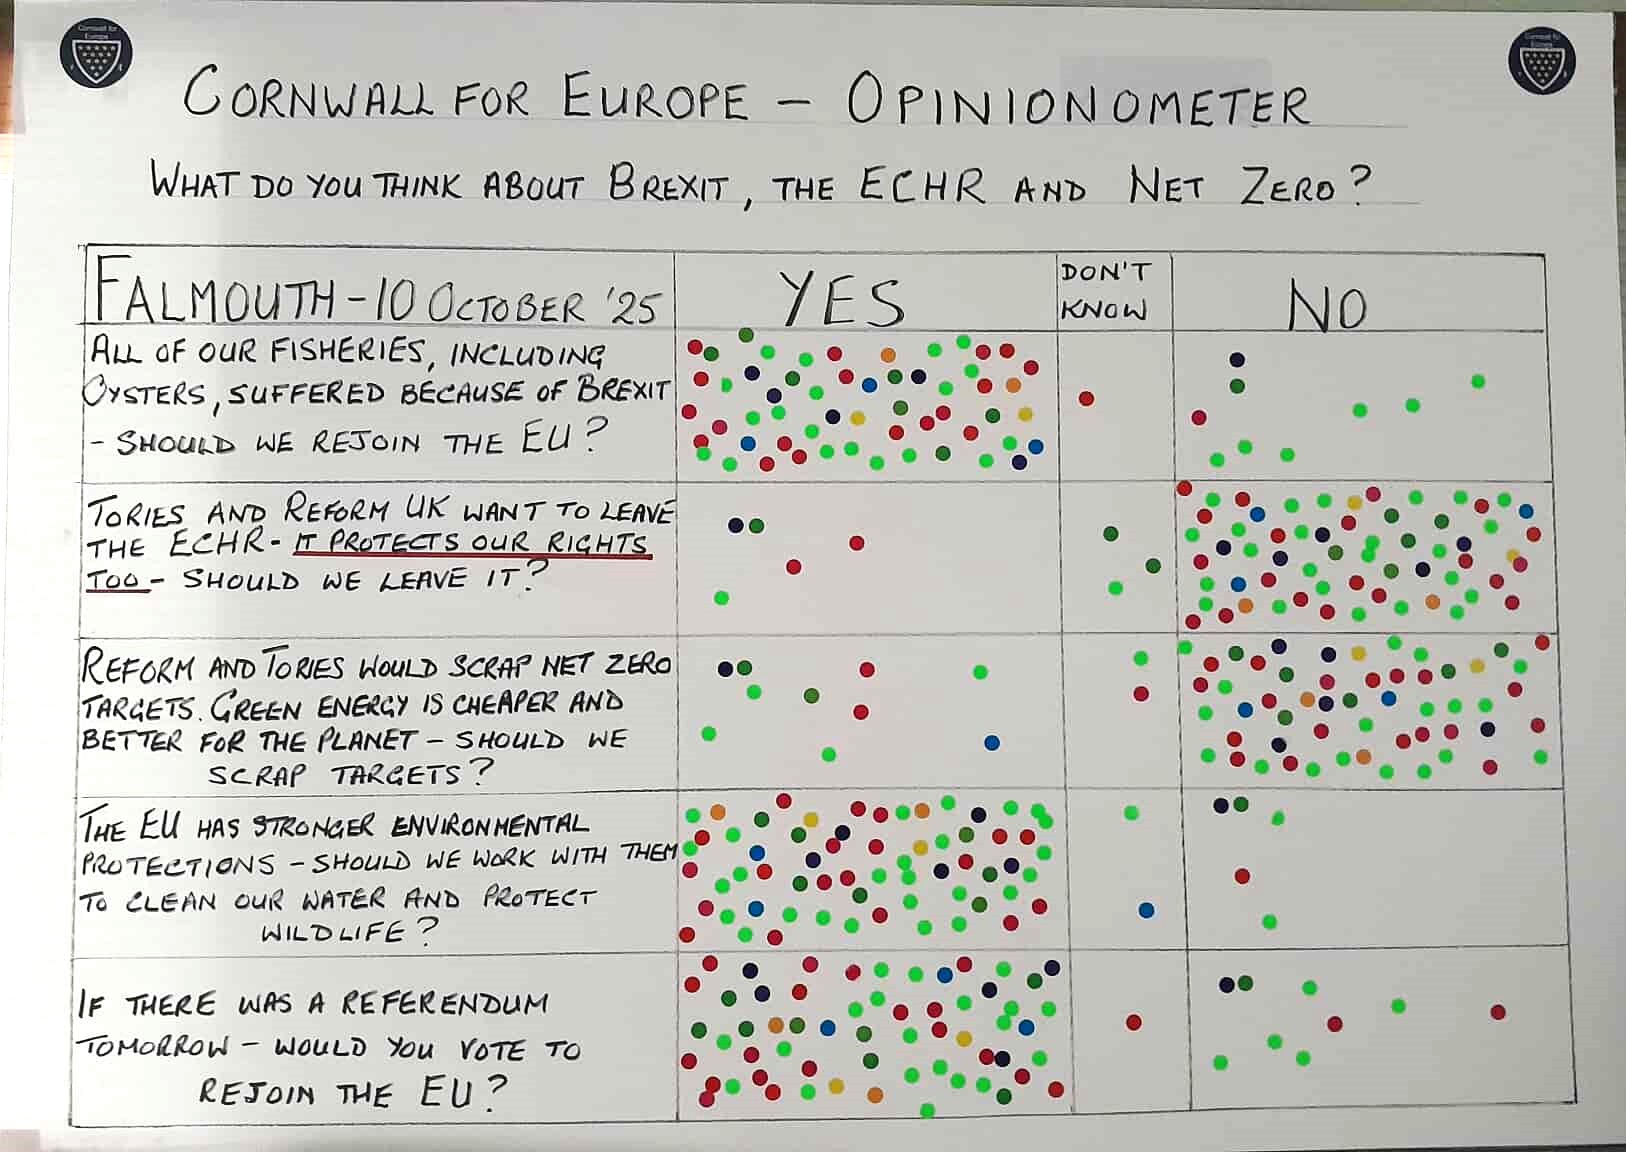 Cornwall for
Europe
Cornwall for
Europe
CORNWALL FOR EUROPE – OPINIONOMETER
WHAT DO YOU THINK ABOUT BREXIT, THE ECHR AND NET ZERO?
FALMOUTH – 10 OCTOBER '25
YES
DON'T
KNOW
NO
ALL OF OUR FISHERIES, INCLUDING
OYSTERS, SUFFERED BECAUSE OF BREXIT
- SHOULD WE REJOIN THE EU?
TORIES AND REFORM UK WANT TO LEAVE
THE ECHR - IT PROTECTS OUR RIGHTS
TOO - SHOULD WE LEAVE IT?
REFORM AND TORIES WOULD SCRAP NET ZERO
TARGETS. GREEN ENERGY IS CHEAPER AND
BETTER FOR THE PLANET – SHOULD WE
SCRAP TARGETS?
THE EU HAS STRONGER ENVIRONMENTAL
PROTECTIONS – SHOULD WE WORK WITH THEM
TO CLEAN OUR WATER AND PROTECT
WILDLIFE?
IF THERE WAS A REFERENDUM
TOMORROW – WOULD YOU VOTE TO
REJOIN THE EU?